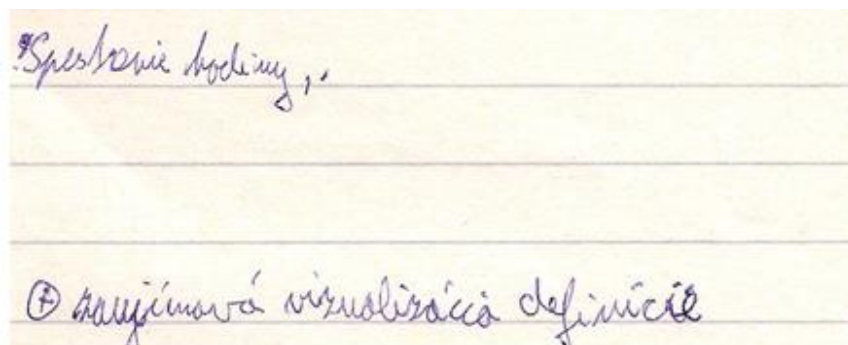 Spestrenie hodiny,.
⊕ zaujímavá vizualizácia definície